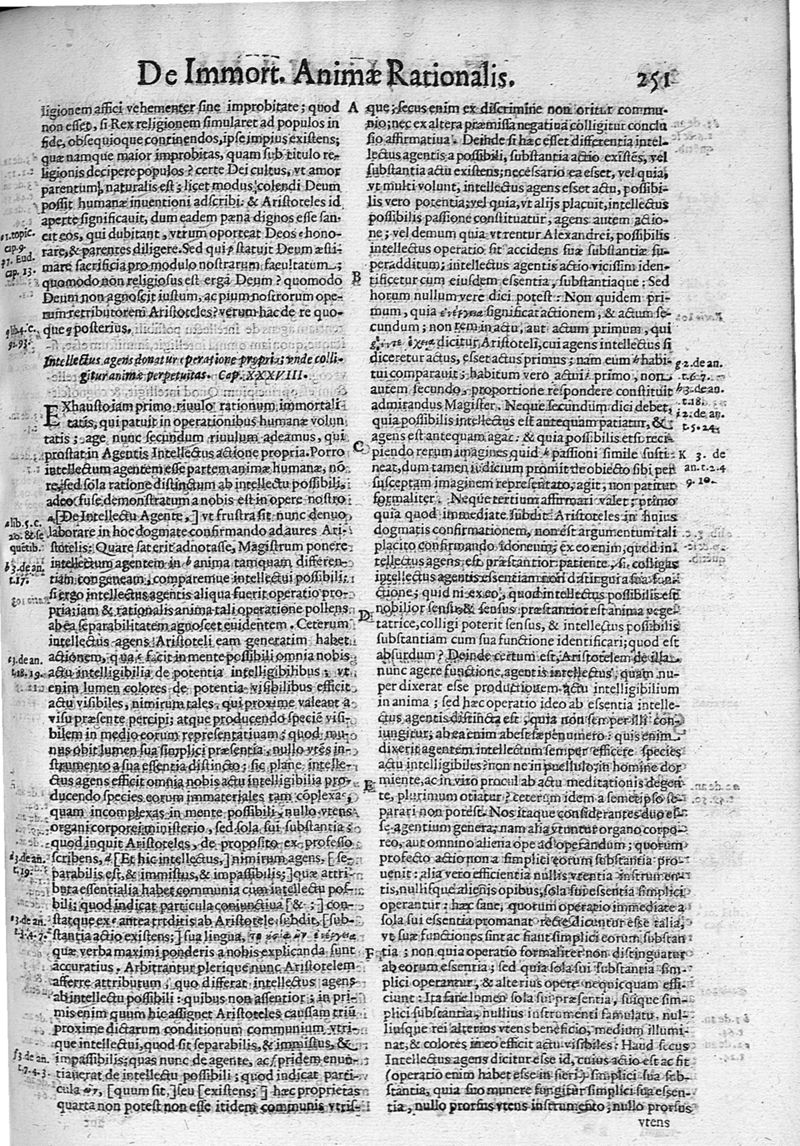 De Immort. Animæ Rationalis. 251
ligionem affici vehementer sine improbitate; quod
non esset, si Rex religionem simularet ad populos in
fide, obsequioque continendos, ipse impius existens;
quæ namque maior improbitas, quam sub titulo re-
ligionis decipere populos? certe Dei cultus, vt amor
parentum, naturalis est; licet modus colendi Deum
possit humanæ inuentioni adscribi: & Aristoteles id
aperte significauit, dum eadem pœna dignos esse san-
cit eos, qui dubitant, vtrum oporteat Deos e honо-
rare, & parentes diligere. Sed qui f statuit Deum æsti-
mare sacrificia pro modulo nostrarum facultatum;
quomodo non religiosus est ergà Deum? quomodo
Deum non agnoscit iustum, ac pium nostrorum ope-
rum retributorem Aristoteles? verum hac de re quo-
que g posterius.
Intellectus agens donatur operatione propria; vnde colli-
gitur animæ perpetuitas. Cap. XXXVIII.
EXhausto iam primo riuulo rationum immortali-
tatis, qui patuit in operationibus humanæ volun-
tatis; age nunc secundum riuulum adeamus, qui
prostat in Agentis Intellectus actione propria. Porro
intellectum agentem esse partem animæ humanæ, no-
re, sed sola ratione distinctum ab intellectu possibili,
adeo fuse demonstratum a nobis est in opere nostro
a [De Intellectu Agente,] vt frustra sit nunc denuo
laborare in hoc dogmate confirmando ad aures Ari-
stotelis: Quare sat erit adnotasse, Magistrum ponere
intellectum agentem in b anima tamquam differen-
tiam congeneam, comparemue intellectui possibili;
si ergo intellectus agens aliqua fuerit operatio pro-
pria; iam & rationalis anima tali operatione pollens
ab ea separabilitatem agnoscet euidentem. Ceterum
intellectus agens Aristoteli eam generatim habet
actionem, qua c facit in mente possibili omnia nobis
actu intelligibilia de potentia intelligibilibus; vt
enim lumen colores de potentia visibilibus efficit
actu visibiles, nimirum tales, qui proxime valeant a
visu præsente percipi; atque producendo speciẽ visi-
bilem in medio eorum representatiuam; quod mu-
nus obit lumen sua simplici præsentia, nullo vtẽs in-
strumento a sua essentia distincto; sic plane intelle-
ctus agens efficit omnia nobis actu intelligibilia pro-
ducendo species eorum immateriales tam cõplexas,
quam incomplexas in mente possibili, nullo vtens
organi corporei ministerio, sed sola sui substantia;
quod inquit Aristoteles, de proposito ex professo
scribens, d [Et hic intellectus,] nimirum agens, [se-
parabilis est, & immistus, & impassibilis;] quæ attri-
buta essentialia habet communia cum intellectu pos-
sibili; quod indicat particula coniunctiua [&;] con-
statque ex e antea traditis ab Aristotele: subdit, [sub-
stantia actio existens;] sua lingua,
quæ verba maximi ponderis a nobis explicanda sunt
accuratius. Arbitrantur plerique nunc Aristotelem
afferre attributum, quo differat intellectus agens
ab intellectu possibili: quibus non assentior; in pri-
mis enim quum hic assignet Aristoteles caussam triũ
proxime dictarum conditionum communium vtri-
que intellectui, quod sit separabilis, & immistus, &
impassibilis; quas nunc de agente, ac f pridem enun-
tiauerat de intellectu possibili; quod indicat parti-
cula ὤν, [quum sit,] seu [existens;] hæc proprietas
quarta non potest non esse itidem communis vtris-
A que; secus enim ex discrimine non oritur commu-
nio; nec ex altera præmissa negatiua colligitur conclu
sio affirmatiua. Deinde si hæc esset differentia intel-
lectus agentis a possibili, substantia actio existẽs, vel
substantia actu existens; necessario ea esset, vel quia,
vt multi volunt, intellectus agens esset actu, possibi-
lis vero potentia; vel quia, vt alijs placuit, intellectus
possibilis passione constituatur, agens autem actio-
ne; vel demum quia vt rentur Alexandrei, possibilis
intellectus operatio sit accidens suæ substantiæ su-
peradditum; intellectus agentis actio vicissim iden-
B tificetur cum eiusdem essentia, substantiaque: Sed
horum nullum vere dici potest: Non quidem pri-
mum, quia ἐνέργεια significat actionem, & actum se-
cundum; non rem in actu, aut actum primum, qui
dicitur Aristoteli, cui agens intellectus si
diceretur actus, esset actus primus; nam eum h habi-
tui comparauit; habitum vero actui i primo, non
autem secundo, proportione respondere constituit
admirandus Magister. Neque secundum dici debet,
quia possibilis intellectus est antequam patiatur, &
agens est antequam agat: & quia possibilis etsi reci-
C piendo rerum imagines, quid k passioni simile susti-
neat, dum tamen iudicium promit de obiecto sibi per
susceptam imaginem representato, agit; non patitur
formaliter. Neque tertium affirmari valet; primo
quia quod immediate subdit Aristoteles in huius
dogmatis confirmationem, non est argumentum tali
placito confirmando idoneum; ex eo enim, quod in-
tellectus agens est præstantior patiente, si colligas
intellectus agentis essentiam non distingui a sua fun-
ctione; quid ni ex eo, quod intellectus possibilis est
nobilior sensu & sensus præstantior est anima vege-
D tatrice, colligi poterit sensus, & intellectus possibilis
substantiam cum sua functione identificari; quod est
absurdum? Deinde certum est, Aristotelem de illa
nunc agere functione agentis intellectus, quam nu-
per dixerat esse productionem actu intelligibilium
in anima; sed hæc operatio ideo ab essentia intelle-
ctus agentis distincta est, quia non semper illi con-
iungitur; ab ea enim abest sæpenumero: quis enim
dixerit agentem intellectum semper efficere species
actu intelligibiles? nonne in puellulo; in homine dor
E miente, ac in viro procul ab actu meditationis degen-
te, plurimum otiatur? ceterum idem a semetipso se-
parari non potest. Nos itaque consideramus duo es-
se agentium genera; nam alia vtuntur organo corpo-
reo, aut omnino aliena ope ad operandum; quorum
profecto actio non a simplici eorum substantia pro-
uenit: alia vero efficientia nullis vtentia instrumen-
tis, nullisque alienis opibus, sola sui essentia simplici
operantur: hæc sane, quorum operatio immediate a
sola sui essentia promanat recte dicuntur esse talia,
vt suæ functiones sint ac fiant simplici eorum substan
F tia; non quia operatio formaliter non distinguatur
ab eorum essentia; sed quia sola sui substantia sim-
plici operantur, & alterius opere nequicquam effi-
ciunt: Ita sane lumen sola sui præsentia, suique sim-
plici substantia, nullius instrumenti famulatu, nul-
liusque rei alterius vtens beneficio, medium illumi-
nat, & colores in eo efficit actu visibiles: Haud secus
Intellectus agens dicitur esse id, cuius actio est ac fit
(operatio enim habet esse in fieri) simplici sua sub-
stantia, quia suo munere fungitur simplici sui essen-
tia, nullo prorsus vtens instrumento; nullo prorsus
vtens
e 1. topic.
cap. 9.
f 7. Eud.
cap. 13.
g lib. 4. c.
a lib. 5. c.
b 3. de an.
t. 17.
c 3. de an.
t. 18. 19.
d 3. de an.
t. 19.
e 3. de an.
f 3. de an.
g 2. de an.
t. 6. 7.
h 3. de an.
t. 18.
i 2. de an.
t. 5. 24.
K 3. de
an. t. 2. 4
9. 10.